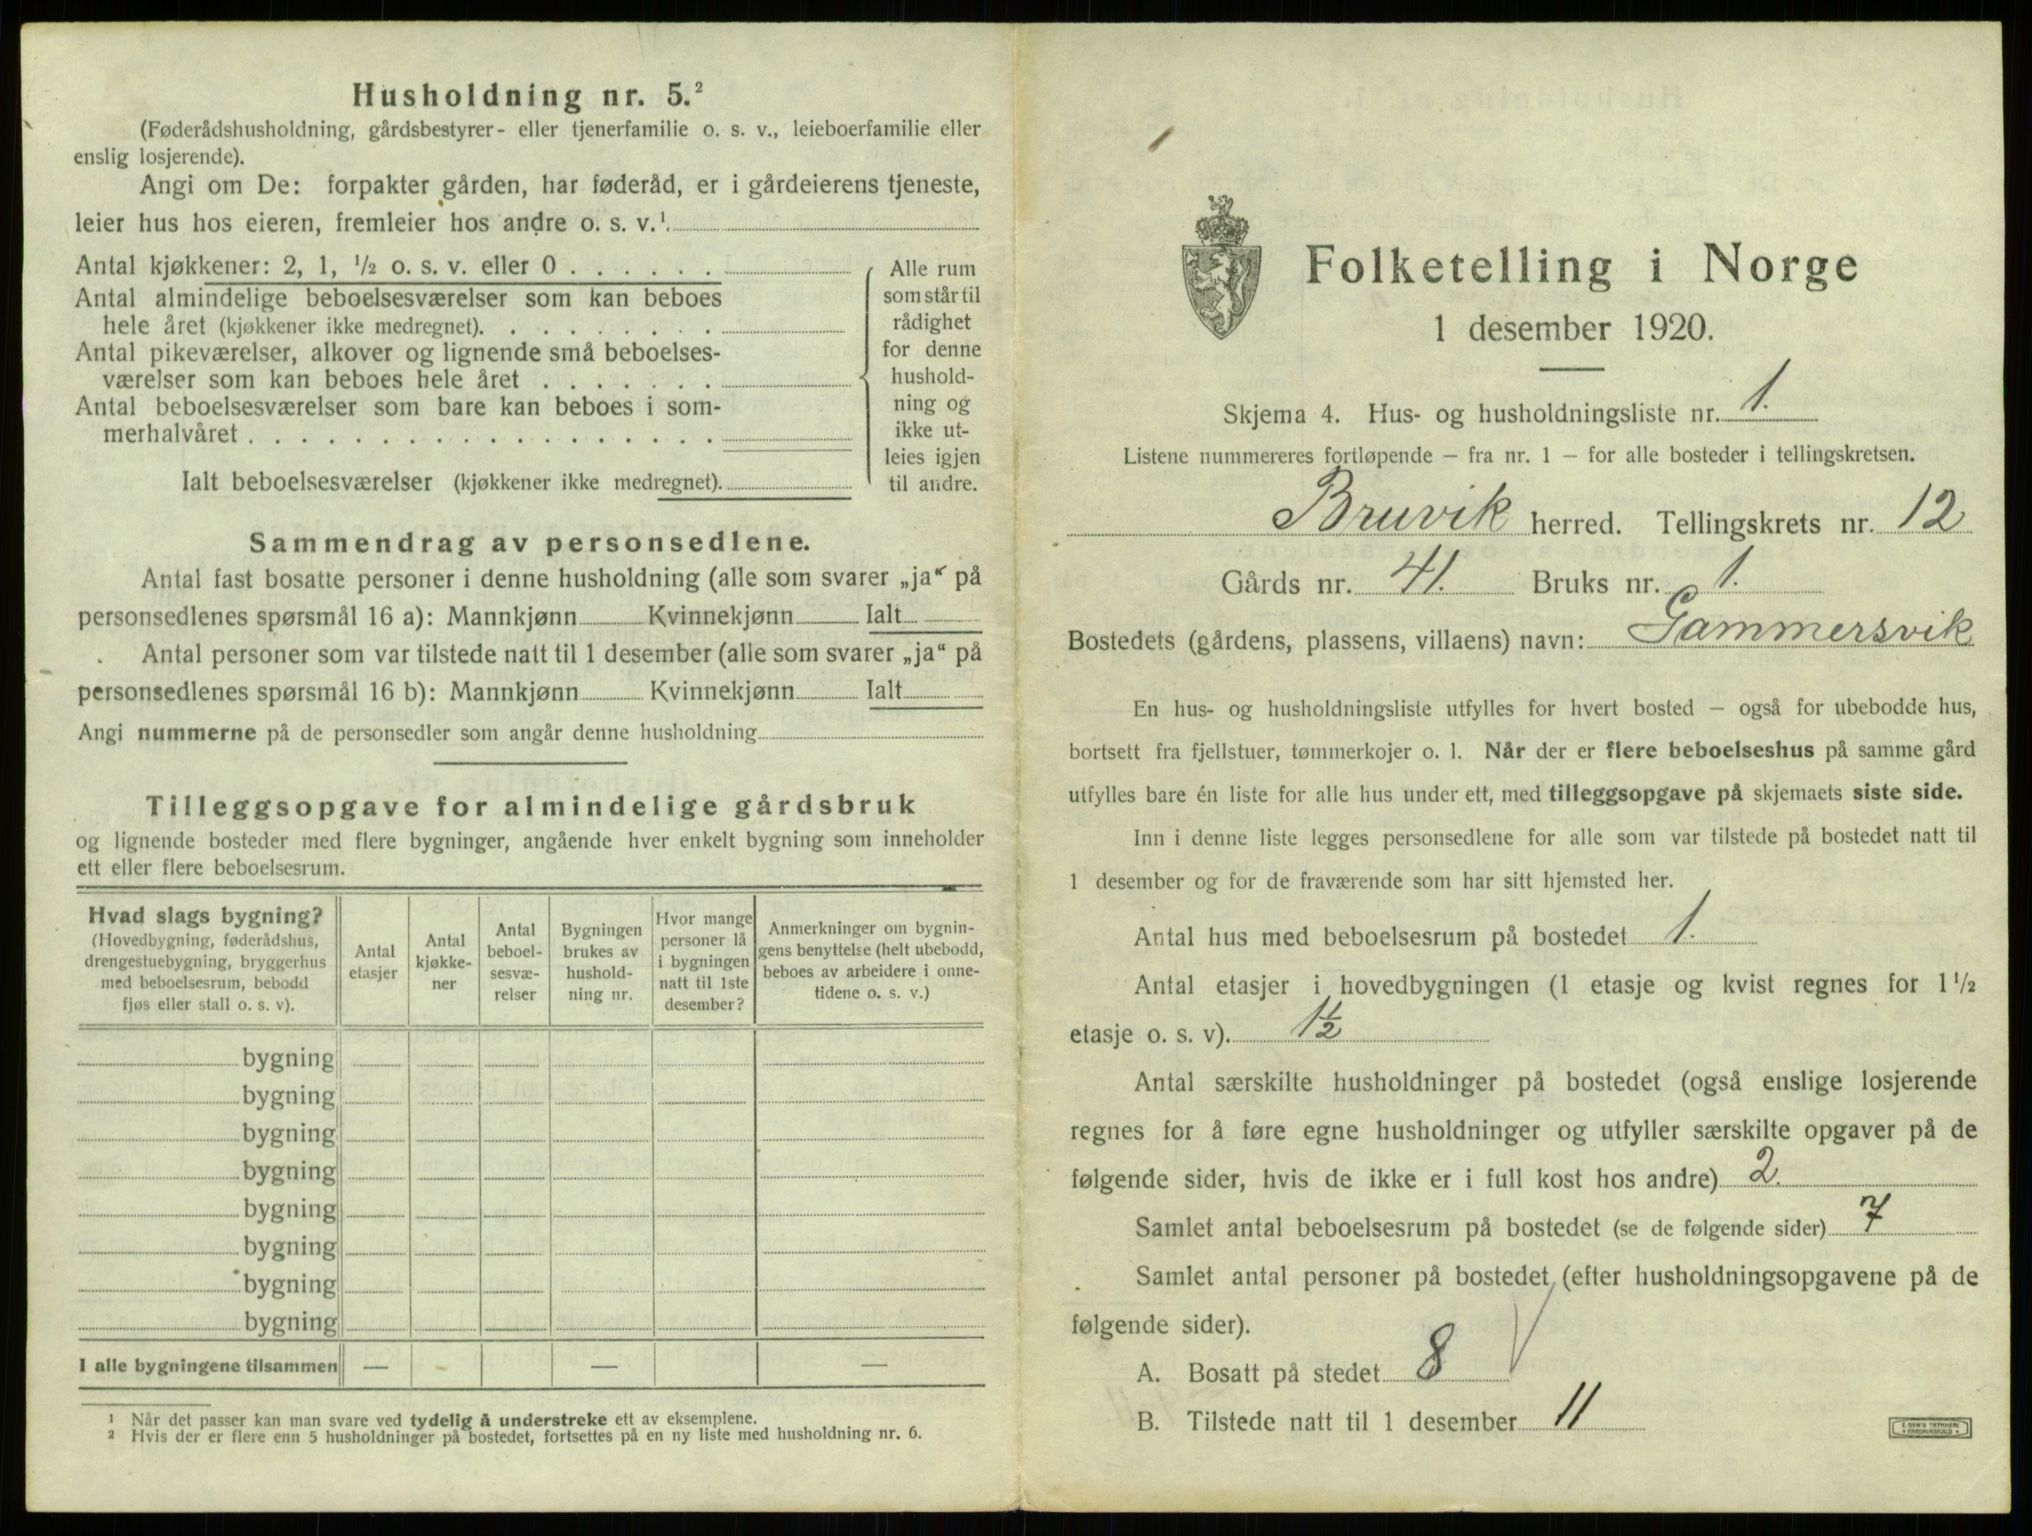 Husholdning nr. 5.²
(Føderådshusholdning, gårdsbestyrer- eller tjenerfamilie o. s. v., leieboerfamilie eller
enslig losjerende).
Angi om De: forpakter gården, har føderåd, er i gårdeierens tjeneste,
leier hus hos eieren, fremleier hos andre o. s. v.¹
Antal kjøkkener: 2, 1, ½ o. s. v. eller 0 . . . . . .
Antal almindelige beboelsesværelser som kan beboes
hele året (kjøkkener ikke medregnet). . . . . . . . .
Antal pikeværelser, alkover og lignende små beboelses-
værelser som kan beboes hele året . . . . . . .
Antal beboelsesværelser som bare kan beboes i som-
merhalvåret . . . . . . . . . . . . . . . . . .
Ialt beboelsesværelser (kjøkkener ikke medregnet).
Alle rum
som står til
rådighet
for denne
hushold-
ning og
ikke ut-
leies igjen
til andre.
Sammendrag av personsedlene.
Antal fast bosatte personer i denne husholdning (alle som svarer „ja“ på
personsedlenes spørsmål 16 a): Mannkjønn Kvinnekjønn Ialt
Antal personer som var tilstede natt til 1 desember (alle som svarer „ja“ på
personsedlenes spørsmål 16 b): Mannkjønn Kvinnekjønn Ialt
Angi nummerne på de personsedler som angår denne husholdning
Tilleggsopgave for almindelige gårdsbruk
og lignende bosteder med flere bygninger, angående hver enkelt bygning som inneholder
ett eller flere beboelsesrum.
Hvad slags bygning?
(Hovedbygning, føderådshus,
drengestuebygning, bryggerhus
med beboelsesrum, bebodd
fjøs eller stall o. s. v).
Antal
etasjer
Antal
kjøkke-
ner
Antal
beboel-
sesvæ-
relser
Bygningen
brukes av
hushold-
ning nr.
Hvor mange
personer lå
i bygningen
natt til 1ste
desember?
Anmerkninger om bygnin-
gens benyttelse (helt ubebodd,
beboes av arbeidere i onne-
tidene o. s. v.)
bygning
bygning
bygning
bygning
bygning
bygning
bygning
bygning
I alle bygningene tilsammen — - — —
¹ Når det passer kan man svare ved tydelig å understreke ett av eksemplene.
² Hvis der er flere enn 5 husholdninger på bostedet, fortsettes på en ny liste med husholdning nr. 6.
Folketelling i Norge
1 desember 1920.
Skjema 4. Hus- og husholdningsliste nr. 1.
Listene nummereres fortløpende – fra nr. 1 – for alle bosteder i tellingskretsen.
Bruvik herred. Tellingskrets nr. 12
Gårds nr. 41. Bruks nr. 1.
Bostedets (gårdens, plassens, villaens) navn: Gammersvik
En hus- og husholdningsliste utfylles for hvert bosted – også for ubebodde hus,
bortsett fra fjellstuer, tømmerkojer o. l. Når der er flere beboelseshus på samme gård
utfylles bare én liste for alle hus under ett, med tilleggsopgave på skjemaets siste side.
Inn i denne liste legges personsedlene for alle som var tilstede på bostedet natt til
1 desember og for de fraværende som har sitt hjemsted her.
Antal hus med beboelsesrum på bostedet 1.
Antal etasjer i hovedbygningen (1 etasje og kvist regnes for 1½
etasje o. s. v). 1½
Antal særskilte husholdninger på bostedet (også enslige losjerende
regnes for å føre egne husholdninger og utfyller særskilte opgaver på de
følgende sider, hvis de ikke er i full kost hos andre) 2.
Samlet antal beboelsesrum på bostedet (se de følgende sider) 7
Samlet antal personer på bostedet (efter husholdningsopgavene på de
følgende sider).
A. Bosatt på stedet 8
B. Tilstede natt til 1 desember 11